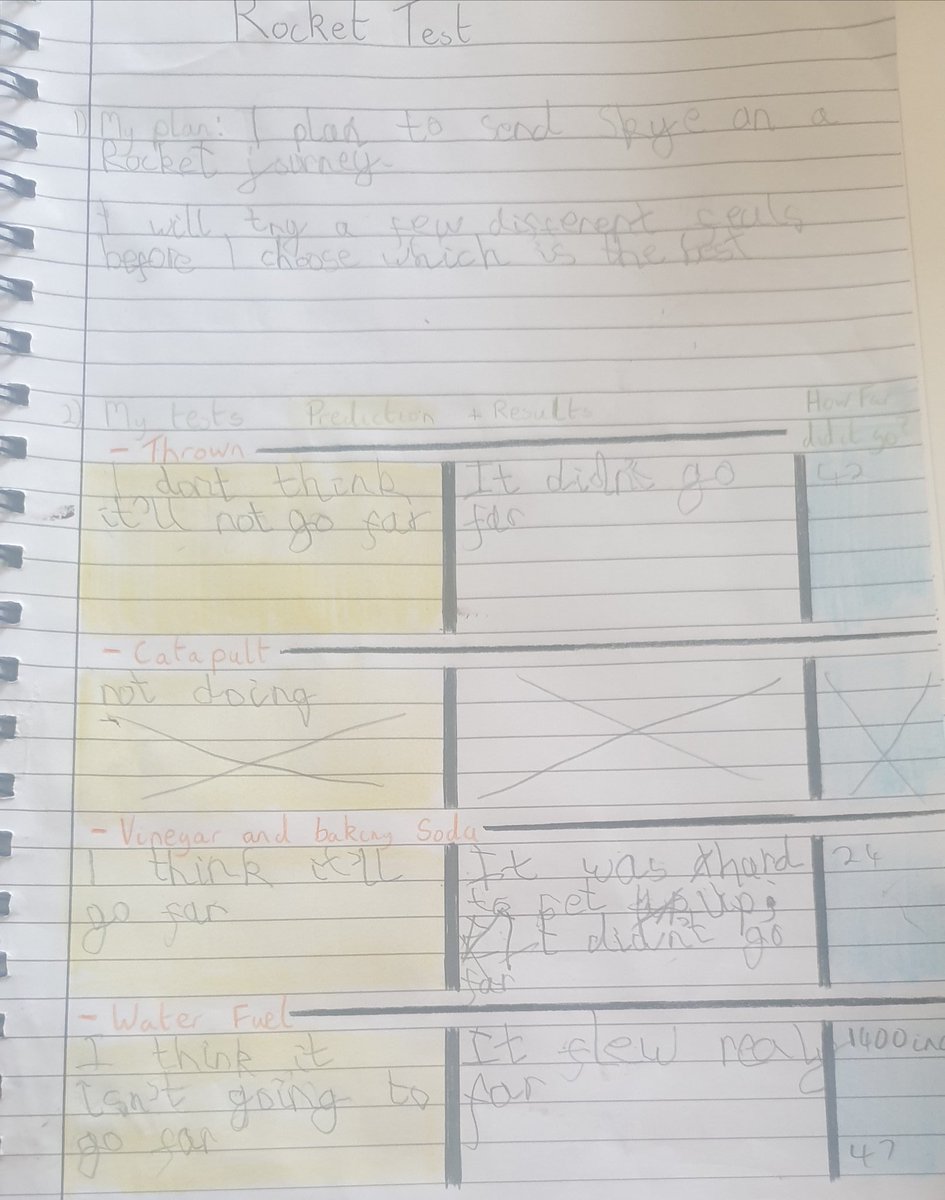 Rocket Test
1) My plan: I plan to send Skye on a
Rocket journey.
I will try a few different feuls
before I choose which is the best
2) My tests Prediction + Results How Far
did it go?
- Thrown
I dont think
it'll not go far
It didn't go
far
42
- Catapult
not doing
- Vinegar and baking Soda
I think it'll
go far
It was hard
to set up,
It didn't go
far
24
- Water Fuel
I think it
isn't going to
go far
It flew realy
far
1400 inc
47